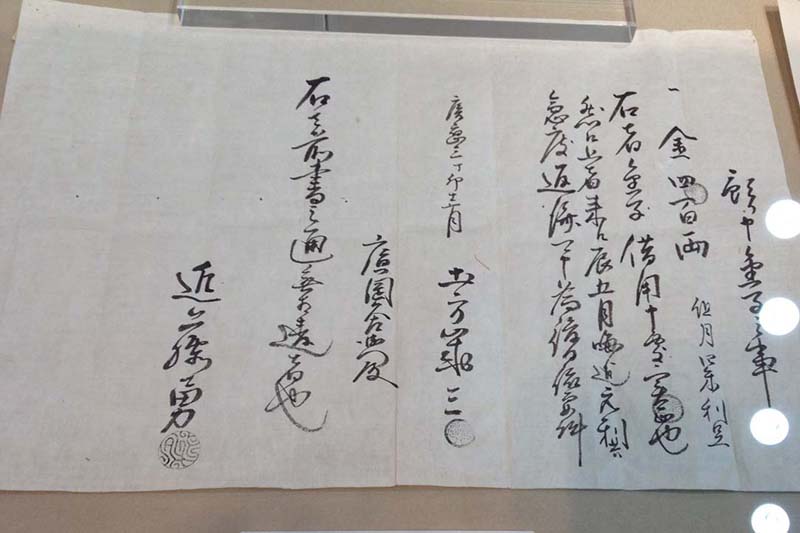 預り申金子之事
一金四百両 但月 利足
右者金子借用申処実正也
然ル上者来ル辰五月晦迄元利共
急度返済可申為後日依而如件
慶応三丁卯十二月 土方歳三
殿
右之前書之通無相違者也
近藤勇